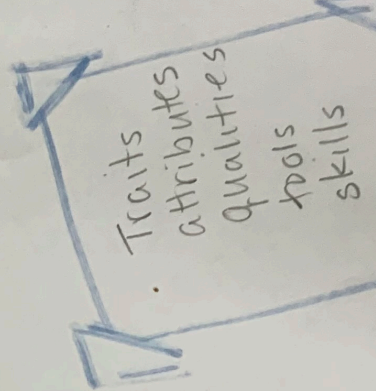 · Traits
attributes
qualities
tools
skills